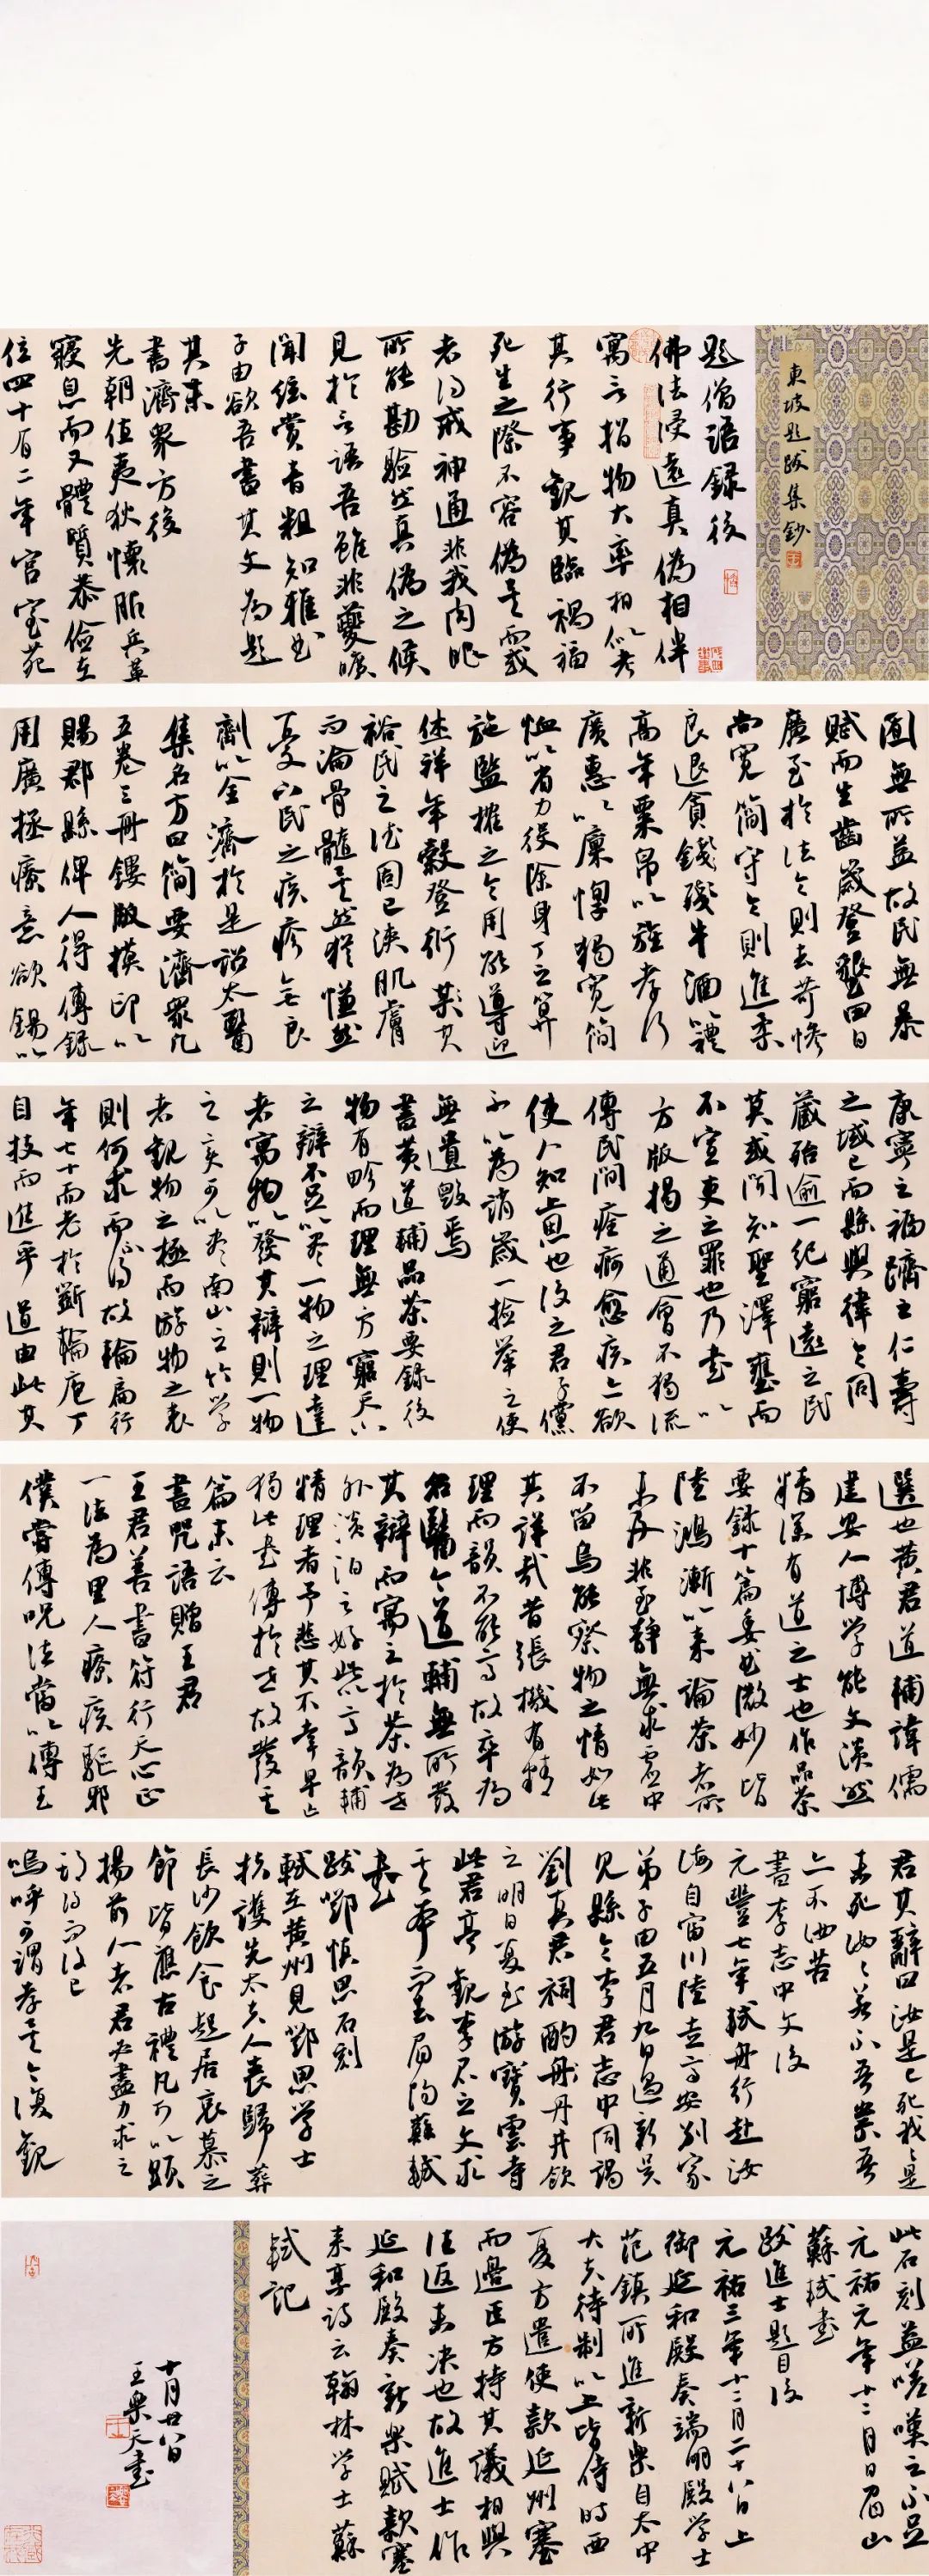 東坡題跋集鈔
題僧語錄後
佛法浸遠真偽相半
寓言指物大率相似考
其行事觀其臨禍福
死生之際不容偽矣而或
者得戒神通非我肉眼
所能勘驗然真偽之候
見於言語吾雖非夔曠
聞弦賞音粗知雅曲
子由欲吾書其文為題
其末
書濟眾方後
先朝值夷狄懷服兵革
寢息而又體質恭儉在
位四十有二年宮室苑
囿無所益故民無暴
賦而生齒歲登墾田日
廣至於法令則去苛慘
尚寬簡守令則進柔
良退貪殘牛酒禮
高年粟帛以旌孝行
廣惠以廩惸獨寬簡
恤以省力役除身丁之算
弛監榷之令用能導迎
休祥年穀登衍其於
裕民之德固已浹肌膚
而淪骨髓矣然猶慊然
憂下民之疾疹無良
劑以全濟於是詔太醫
集名方曰簡要濟眾凡
五卷三冊鏤版模印以
賜郡縣俾人得傳錄
用廣拯療意欲錫以
康寧之福躋之仁壽
之域已而縣與律令同
藏殆逾一紀窮遠之民
莫或聞知聖澤壅而
不宣吏之罪也乃書以
方版揭之通會不獨流
傳民間痊痾愈疾亦欲
使人知上恩也後之君子儻
不以為誚歲一檢舉之使
無遺毀焉
書黃道輔品茶要錄後
物有畛而理無方窮天下
之辯不足以盡一物之理達
者寓物以發其辯則一物
之變可以盡南山之竹學
者觀物之極而游物之表
則何求而不得故輪扁行
年七十而老於斲輪庖丁
自技而進乎道由此其
選也黃君道輔諱儒
建安人博學能文淡然
精深有道之士也作品茶
要錄十篇委曲微妙皆
陸鴻漸以來論茶者所
未及非至靜無求虛中
不留烏能察物之情如此
其詳哉昔張機有精
理而韻不能高故卒為
名醫今道輔無所發
其辯而寓之於茶為世
外淡泊之好此以高韻輔
精理者予悲其不幸早亡
獨此書傳於世故發其
篇末云
書咒語贈王君
王君善書符行天心正
一法為里人療疾驅邪
僕嘗傳咒法當以傳王
君其辭曰汝是已死我我是
未死汝汝若不吾祟吾
亦不汝苦
書李志中文後
元豐七年軾舟行赴汝
海自富川陸走高安別家
弟子由五月九日過新吳
見縣令李君志中同謁
劉真君祠酌丹井飲
之明日憂至游寶雲寺
此君亭觀李君之文求
其本而去眉陽蘇軾
書
跋鄧慎思石刻
軾在黃州見鄧思學士
扶護先太夫人喪歸葬
長沙飲食起居哀慕之
節皆應古禮凡可以顯
揚前人者君必盡力求之
期得而後已
嗚呼可謂孝矣今復觀
此石刻益嗟嘆之不足
元祐元年十二月日眉山
蘇軾書
跋進士題目後
元祐三年十二月二十八日上
御延和殿奏端明殿學士
范鎮所進新樂自太中
大夫待制以上皆侍時西
夏方遣使款延州塞
而邊臣方持其議相與
往返未決也故進士作
延和殿奏新樂賦款塞
來享詩云翰林學士蘇
軾記
十月廿八日
王樂天書